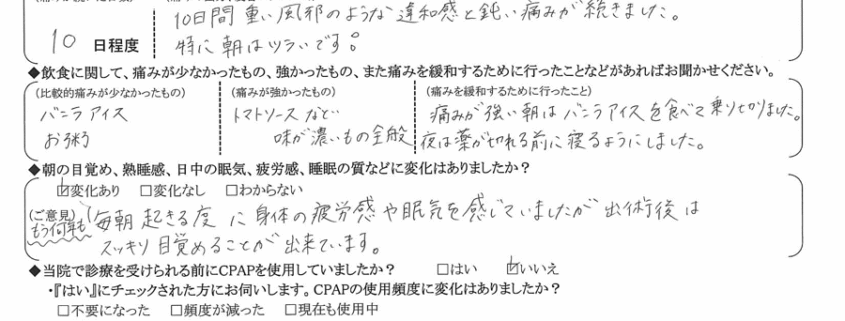 10日間 重い風邪のような違和感と鈍い痛みが続きました。
10 日程度
特に朝はツラいです。
◆飲食に関して、痛みが少なかったもの、強かったもの、また痛みを緩和するために行ったことなどがあればお聞かせください。
(比較的痛みが少なかったもの) (痛みが強かったもの) (痛みを緩和するために行ったこと)
バニラアイス トマトソースなど 痛みが強い朝はバニラアイスを食べて乗り切りました。
お粥 味が濃いもの全般 夜は薬が切れる前に寝るようにしました。
◆朝の目覚め、熟睡感、日中の眠気、疲労感、睡眠の質などに変化はありましたか?
☑変化あり □変化なし □わからない
(ご意見) もう何年も 毎朝起きる度に身体の疲労感や眠気を感じていましたが 出術後は
スッキリ目覚めることが出来ています。
◆当院で診療を受けられる前にCPAPを使用していましたか? □はい ☑いいえ
・『はい』にチェックされた方にお伺いします。CPAPの使用頻度に変化はありましたか?
□不要になった □頻度が減った □現在も使用中